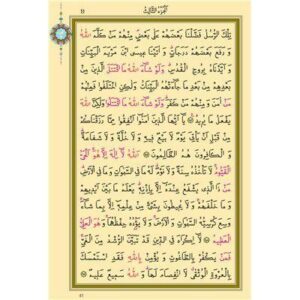 الجزء الثالث
تِلْكَ الرُّسُلُ فَضَّلْنَا بَعْضَهُمْ عَلٰى بَعْضٍ مِنْهُمْ مَنْ كَلَّمَ اللّٰهُ
وَرَفَعَ بَعْضَهُمْ دَرَجَاتٍ وَاٰتَيْنَا عِيسَى ابْنَ مَرْيَمَ الْبَيِّنَاتِ
وَاَيَّدْنَاهُ بِرُوحِ الْقُدُسِ وَلَوْ شَاءَ اللّٰهُ مَا اقْتَتَلَ الَّذِينَ مِنْ
بَعْدِهِمْ مِنْ بَعْدِ مَا جَاءَتْهُمُ الْبَيِّنَاتُ وَلٰكِنِ اخْتَلَفُوا فَمِنْهُمْ
مَنْ اٰمَنَ وَمِنْهُمْ مَنْ كَفَرَ وَلَوْ شَاءَ اللّٰهُ مَا اقْتَتَلُوا وَلٰكِنَّ اللّٰهَ
يَفْعَلُ مَا يُرِيدُ يَا اَيُّهَا الَّذِينَ اٰمَنُوا اَنْفِقُوا مِمَّا
رَزَقْنَاكُمْ مِنْ قَبْلِ اَنْ يَأْتِيَ يَوْمٌ لَا بَيْعٌ فِيهِ وَلَا خُلَّةٌ وَلَا شَفَاعَةٌ
وَالْكَافِرُونَ هُمُ الظَّالِمُونَ اَللّٰهُ لَا اِلٰهَ اِلَّا هُوَ الْحَيُّ
الْقَيُّومُ لَا تَأْخُذُهُ سِنَةٌ وَلَا نَوْمٌ لَهُ مَا فِي السَّمٰوَاتِ وَمَا فِي الْاَرْضِ
مَنْ ذَا الَّذِي يَشْفَعُ عِنْدَهُ اِلَّا بِاِذْنِهِ يَعْلَمُ مَا بَيْنَ اَيْدِيهِمْ
وَمَا خَلْفَهُمْ وَلَا يُحِيطُونَ بِشَيْءٍ مِنْ عِلْمِهِ اِلَّا بِمَا شَاءَ
وَسِعَ كُرْسِيُّهُ السَّمٰوَاتِ وَالْاَرْضَ وَلَا يَؤُدُهُ حِفْظُهُمَا وَهُوَ الْعَلِيُّ
الْعَظِيمُ لَا اِكْرَاهَ فِي الدِّينِ قَدْ تَبَيَّنَ الرُّشْدُ مِنَ الْغَيِّ
فَمَنْ يَكْفُرْ بِالطَّاغُوتِ وَيُؤْمِنْ بِاللّٰهِ فَقَدِ اسْتَمْسَكَ
بِالْعُرْوَةِ الْوُثْقٰى لَا انْفِصَامَ لَهَا وَاللّٰهُ سَمِيعٌ عَلِيمٌ